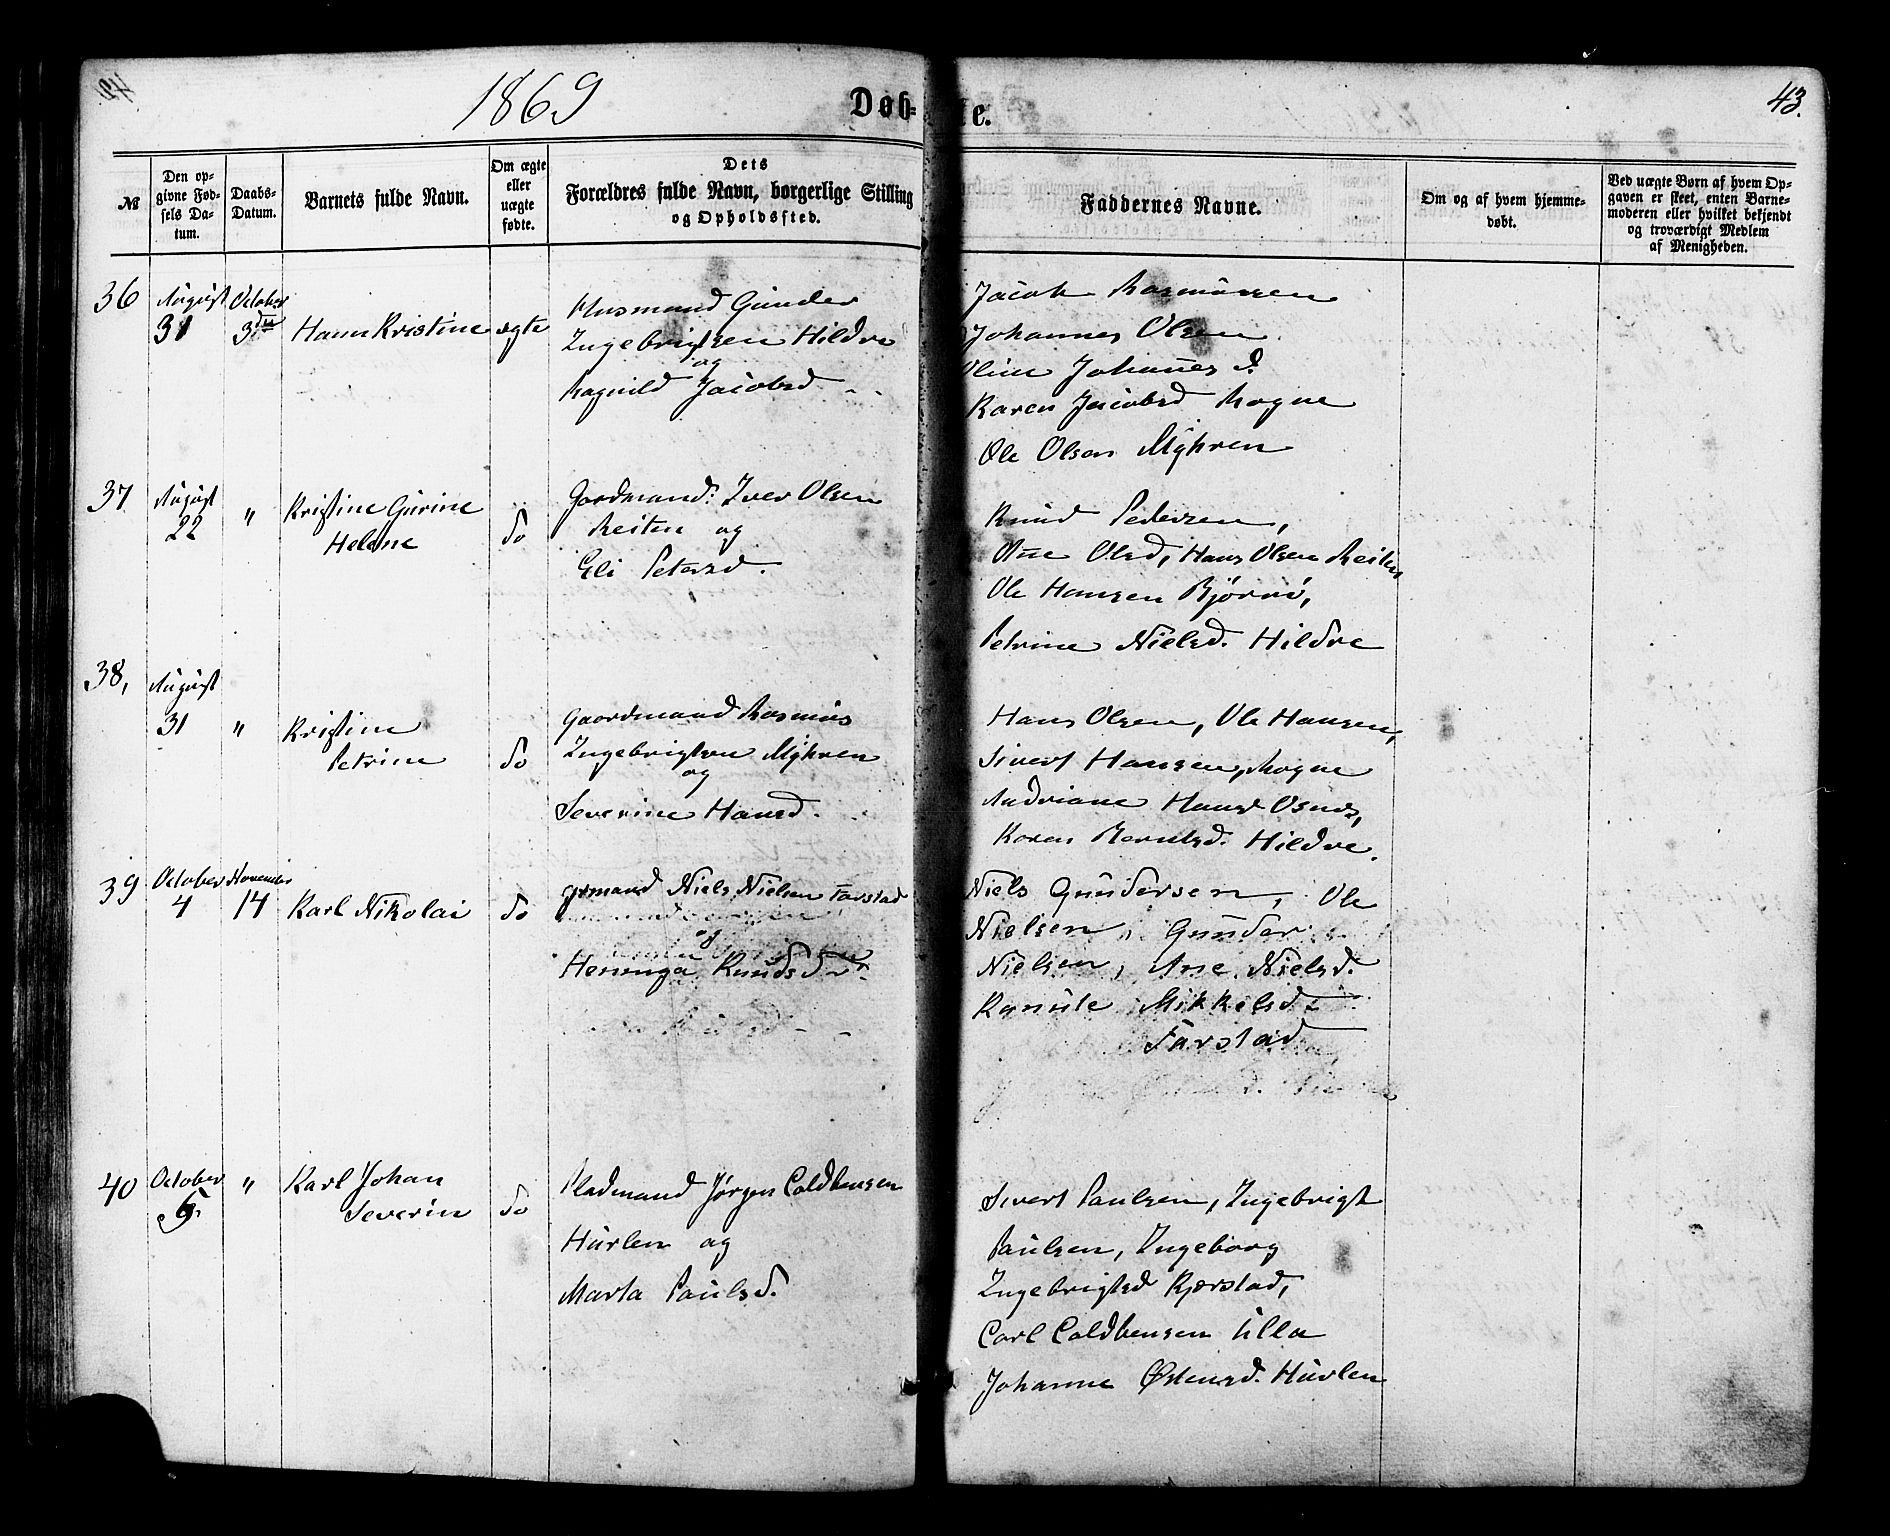 1869
Døb-
te.
43.
№
Den op-
givne Fød-
sels Da-
tum.
Daabs-
Datum.
Barnets fulde Navn.
Om ægte
eller
uægte
fødte.
Dets
Forældres fulde Navn, borgerlige Stilling
og Opholdssted.
Faddernes Navne.
Om og af hvem hjemme-
døbt.
Ved uægte Børn af hvem Op-
gaven er skeet, enten Barne-
moderen eller hvilket bekjendt
og troværdigt Medlem
af Menigheden.
36
August
31
October
3die
Hanna Kristine
ægte
Husmand Gunder
Ingebrigtsen Hildre
og
Ragnild Jacobsd
Jacob Rasmussen
Johannes Olsen
Oline Johannesd.
Karen Jacobsd Rogne
Ole Olsen Myhren
37
August
22
"
Kristine Gurine
Helene
do
Gardmand: Iver Olsen
Reiten og
Eli Petersd.
Knud Pedersen,
Ane Olsd, Hans Olsen Reiten
Ole Hansen Bjørnø,
Petrine Nielsd. Hildre
38,
August
31
"
Kristine
Petrine
do
Gaardmand Rasmus
Ingebrigtsen Myhren
og
Severine Hansd.
Hans Olsen, Ole Hansen,
Sivert Hansen, Rogne
Andriane Hansd Osnes,
Karen Berntsd. Hildre.
39
October
4
November
14
Karl Nikolai
do
Grmand Niels Nielsen Farstad
og
Heninga Knudsdtr
Niels Gundersen, Ole
Nielsen, Gunder
Nielsen, Ane Nielsd.
Kanute Mikkelsd
Farstad
40
October
5
"
Karl Johan
Severin
do
Pladmand Jørgen Coldbensen
Hurlen og
Marta Paulsd.
Sivert Paulsen, Ingebrigt
Paulsen, Ingeborg
Ingebrigtsd Kjærstad,
Carl Coldbensen Ulla
Johanne Østensd. Hurlen